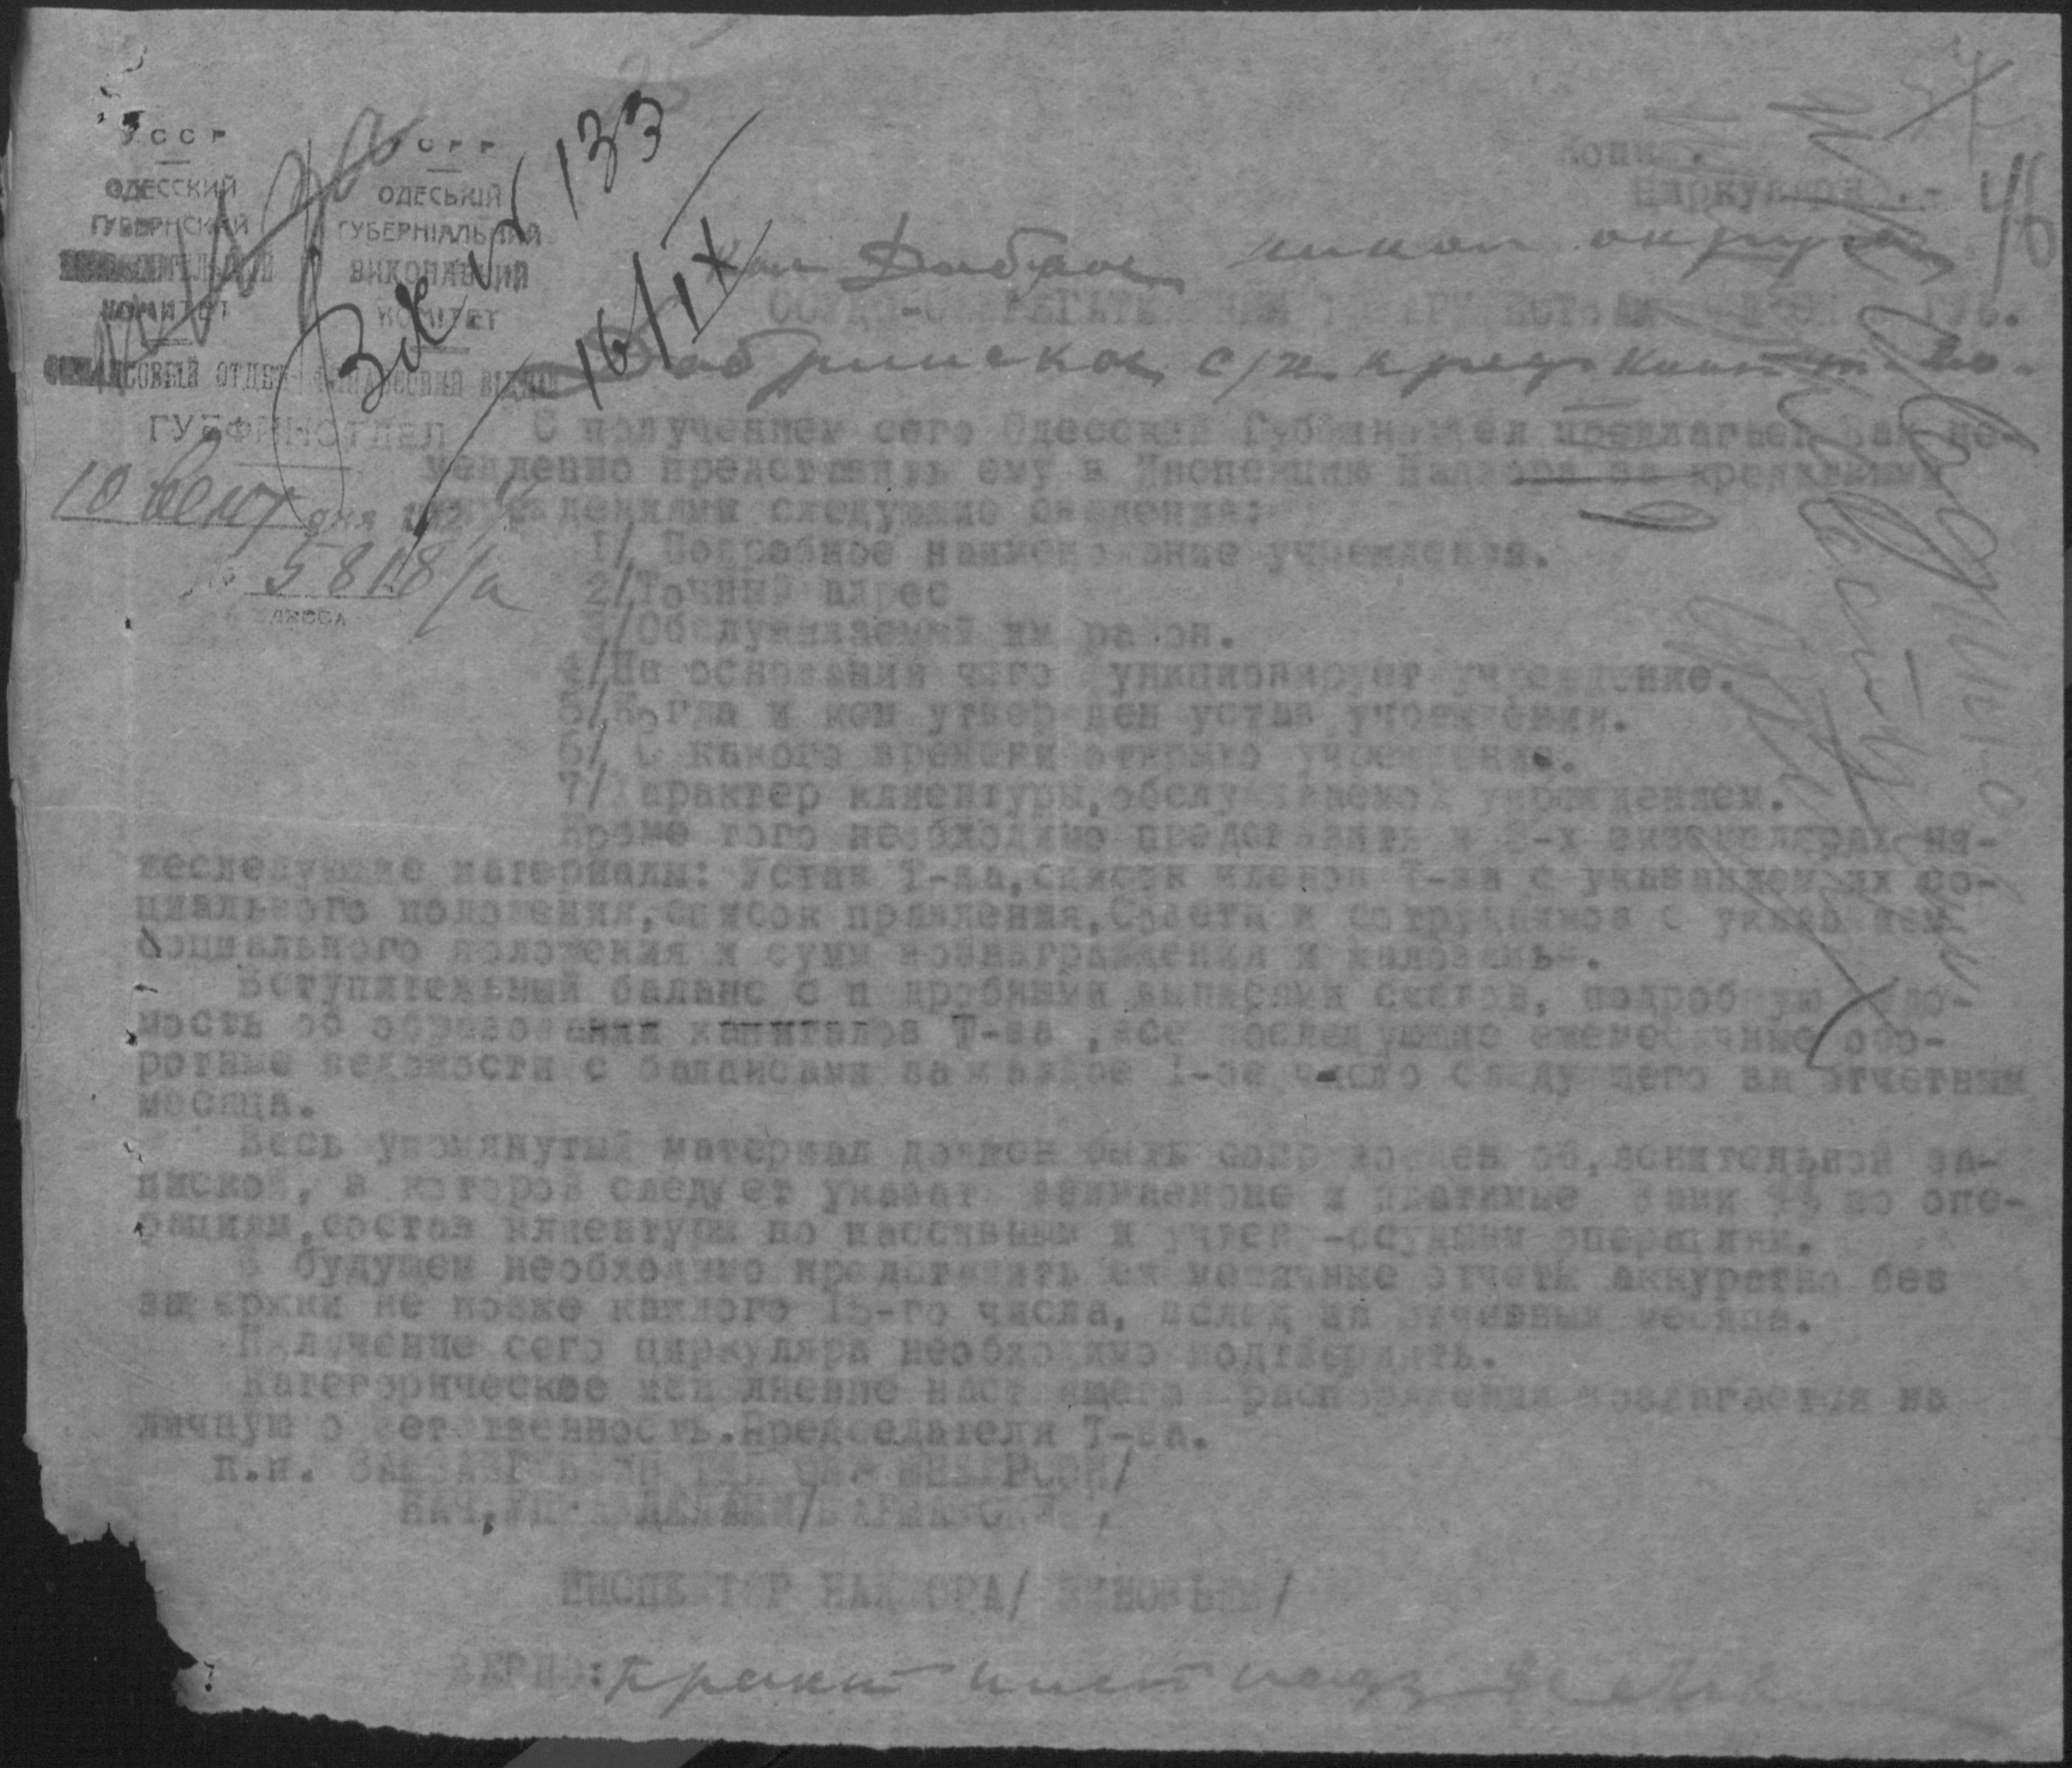 УССР
ОДЕССКИЙ
ГУБЕРНСКИЙ
КОМИТЕТ
ФИНАНСОВЫЙ ОТДЕЛ
УСРР
ОДЕСЬКІЙ
ГУБЕРНІАЛЬНИЙ
ВИКОНАВЧИЙ
КОМІТЕТ
ФІНАНСОВИЙ ВІДДІЛ
ГУБФИНОТДЕЛ
10 сент дня 192
№ 5818/а
ОДЕССА
133
16/IX
Копия.
Циркулярно.-
46
Кол Доброе никол округа
ССУДО-СБЕРЕГАТЕЛЬНЫМ ТОВАРИЩЕСТВАМ ОДЕСС ГУБ.
Добринское с/х кред кооп т-во.
С получением сего Одесский Губфинотдел предлагает Вам не-
медленно представить ему в Инспекцию Надзора за кредитными
учреждениями следующие сведения:
1/ Подробное наименование учреждения.
2/ Точный адрес
3/ Обслуживаемый им район.
4/ На основании чего функционирует учреждение.
5/ Когда и кем утвержден устав учреждения.
6/ С какого времени открыто учреждение.
7/ Характер клиентуры, обслуживаемой учреждением.
Кроме того необходимо представить в 2-х экземплярах ни-
жеследующие материалы: Устав Т-ва, список членов Т-ва с указанием их со-
циального положения, список правления, Совета и сотрудников с указанием
социального положения и сумм вознаграждения и жалованья.
Вступительный баланс с подробными выписями счетов, подробную ведо-
мость об образовании капиталов Т-ва, все последующие ежемесячные обо-
ротные ведомости с балансами на каждое 1-ое число следующего за отчетным
месяца.
Весь упомянутый материал должен быть сопровожден об,яснительной за-
пиской, в которой следует указать взимаемые и платимые Вами %% по опе-
рациям, состав клиентуры по пассивным и учетно-ссудным операциям.
В будущем необходимо представить ежемесячные отчеты аккуратно без
задержки не позже каждого 15-го числа, вслед за отчетным месяца.
Получение сего циркуляра необходимо подтвердить.
Категорическое исполнение настоящего распоряжения возлагается на
личную ответственность Председателя Т-ва.
п.п.
НАЧ. УПР. ДЕЛАМИ/ВАРШАВСКИЙ/
ИНСПЕКТОР НАДЗОРА/ ЗИНОВЬЕВ/
ВЕРНО: